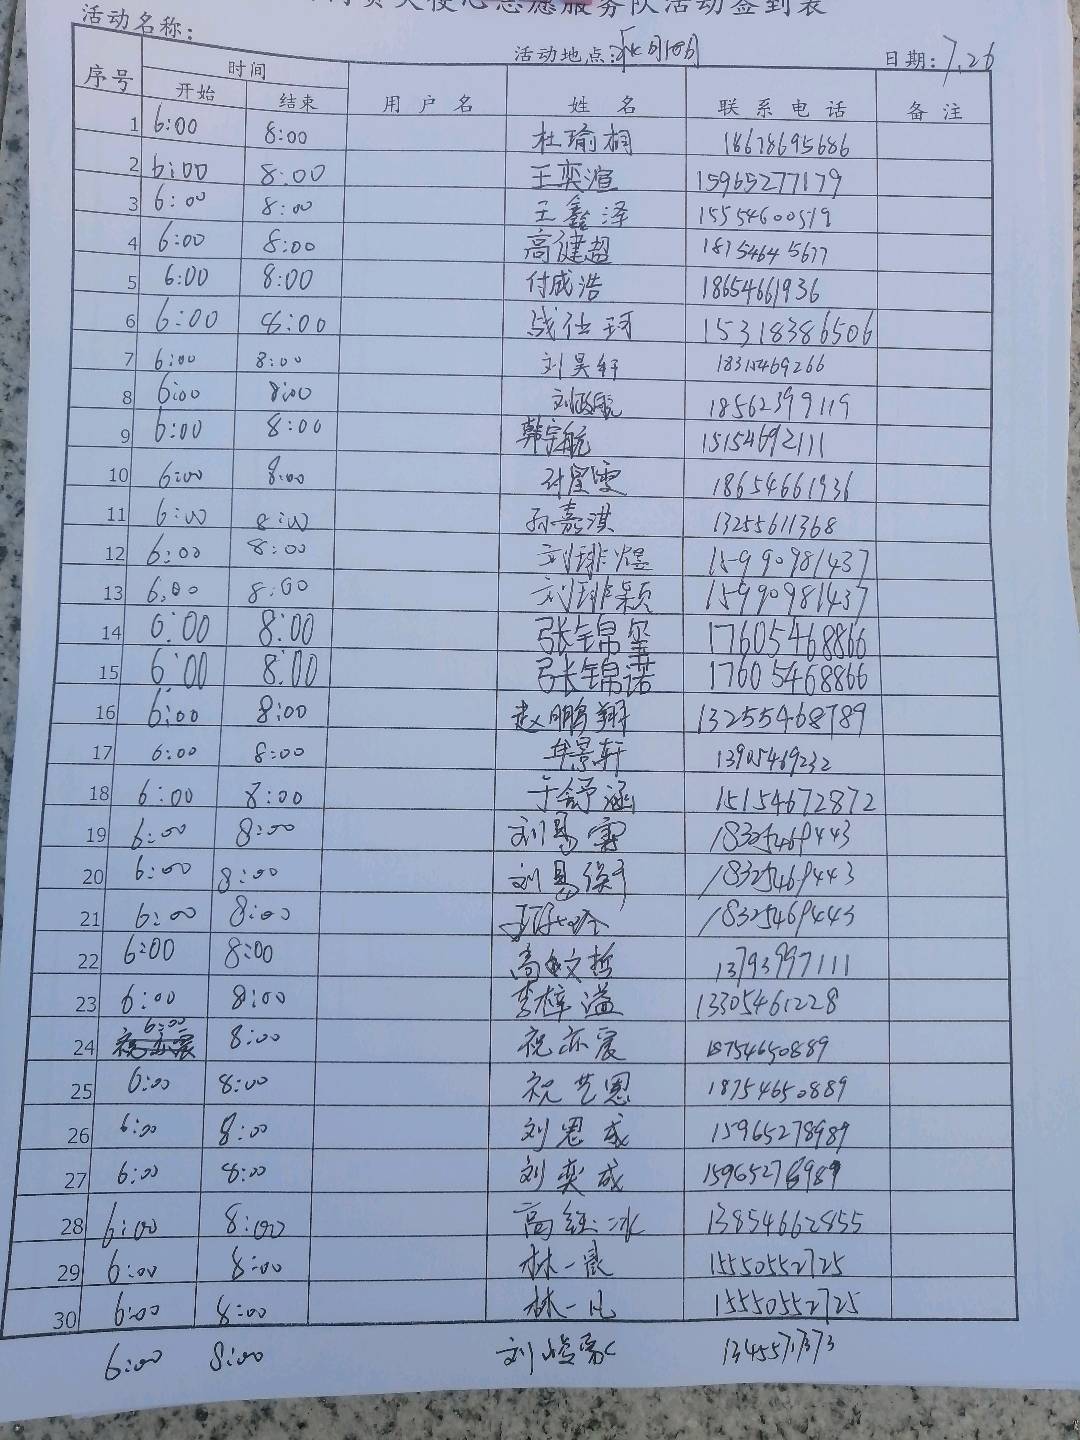 心志愿服务队活动签到表
活动名称: 活动地点: 日期: 7.26
序号 时间 用户名 姓名 联系电话 备注
开始 结束
1 6:00 8:00 杜瑜桐 18678695686
2 6:00 8:00 王奕渲 15965277179
3 6:00 8:00 王鑫泽 15554600519
4 6:00 8:00 高健超 18754645677
5 6:00 8:00 付成浩 18654661936
6 6:00 8:00 战仕珂 15318386506
7 6:00 8:00 刘昊轩 18315469266
8 6:00 8:00 刘政航 18562399119
9 6:00 8:00 韩宇航 15154692111
10 6:00 8:00 付星雯 18654661936
11 6:00 8:00 孙嘉淇 13255611368
12 6:00 8:00 刘琲煜 15990981437
13 6:00 8:00 刘琲颖 15990981437
14 6:00 8:00 张锦玺 17605468866
15 6:00 8:00 张锦诺 17605468866
16 6:00 8:00 赵鹏翔 13255468789
17 6:00 8:00 牟景轩 13905469232
18 6:00 8:00 于舒涵 15154672872
19 6:00 8:00 刘易 18325469443
20 6:00 8:00 刘易 18325469443
21 6:00 8:00 18325469443
22 6:00 8:00 高文哲 13793997111
23 6:00 8:00 李梓溢 13305461228
24 6:00 8:00 祝亦宸 18754650889
25 6:00 8:00 祝艺恩 18754650889
26 6:00 8:00 刘恩成 15965278989
27 6:00 8:00 刘奕成 15965278989
28 6:00 8:00 高钰冰 13854662855
29 6:00 8:00 林一晨 15550552725
30 6:00 8:00 林一凡 15550552725
6:00 8:00 刘峻豪 13455717373